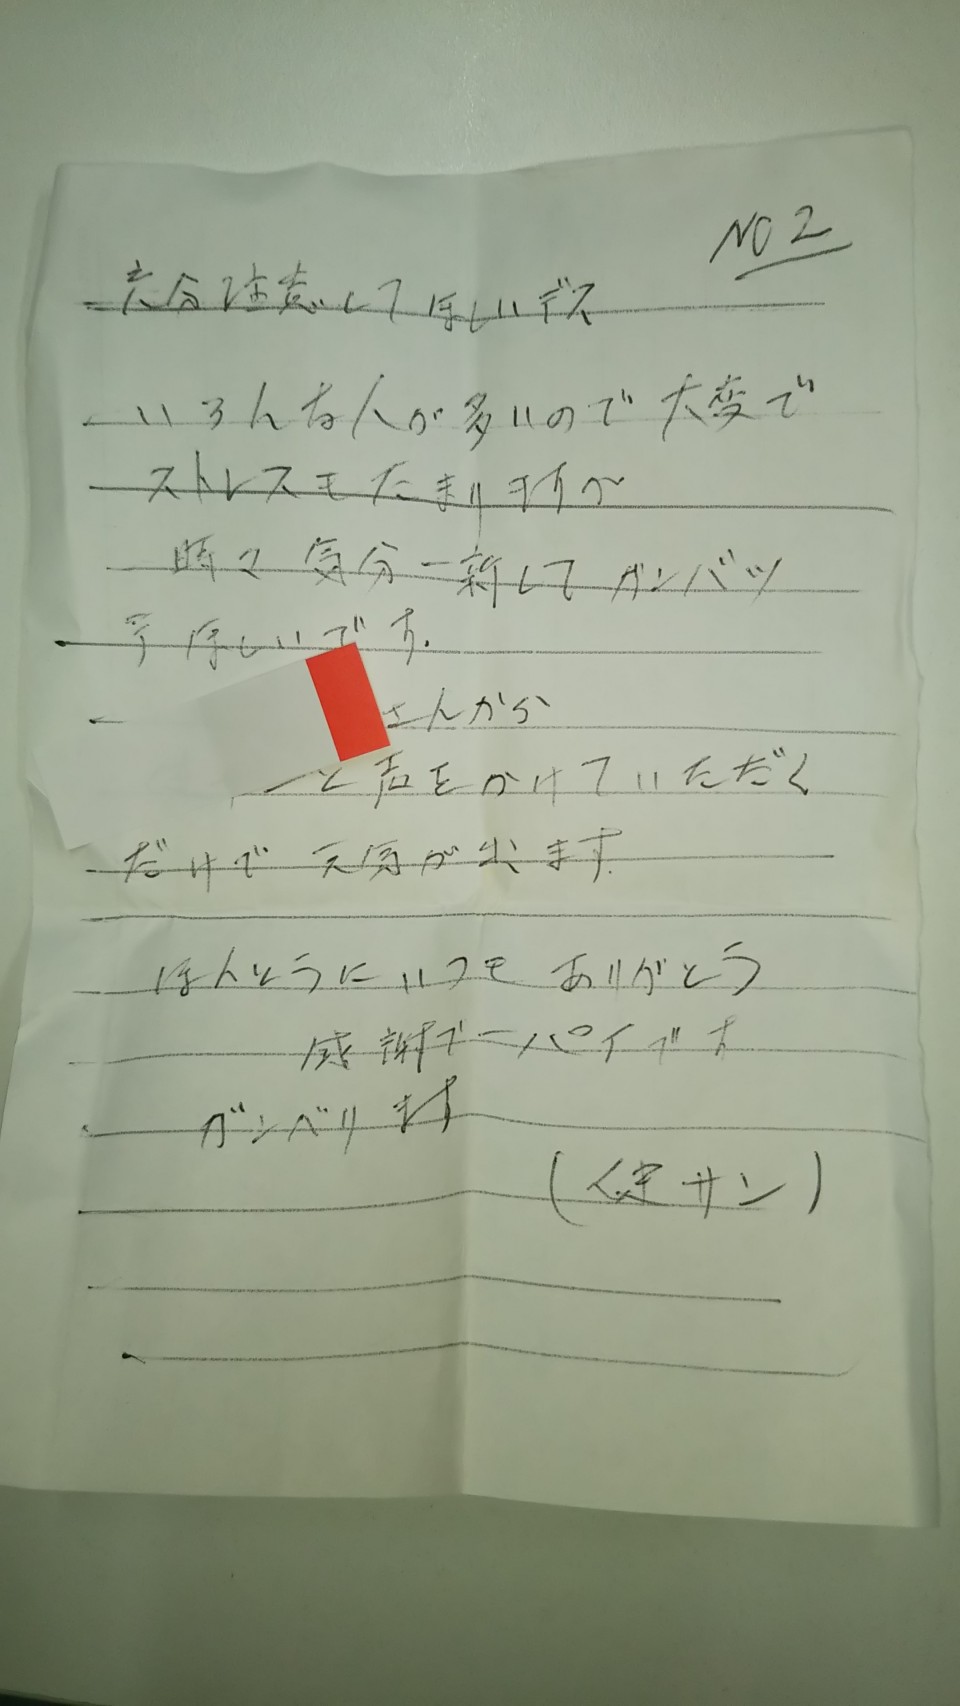 NO 2
充分注意してほしいデス
いろんな人が多いので大変で
ストレスもたまりますが
時々気分一新してガンバッ
テほしいです.
さんから
ーと声をかけていただく
だけで元気が出ます.
ほんとうにいつもありがとう
感謝で一パイです
ガンバリます
(健サン)